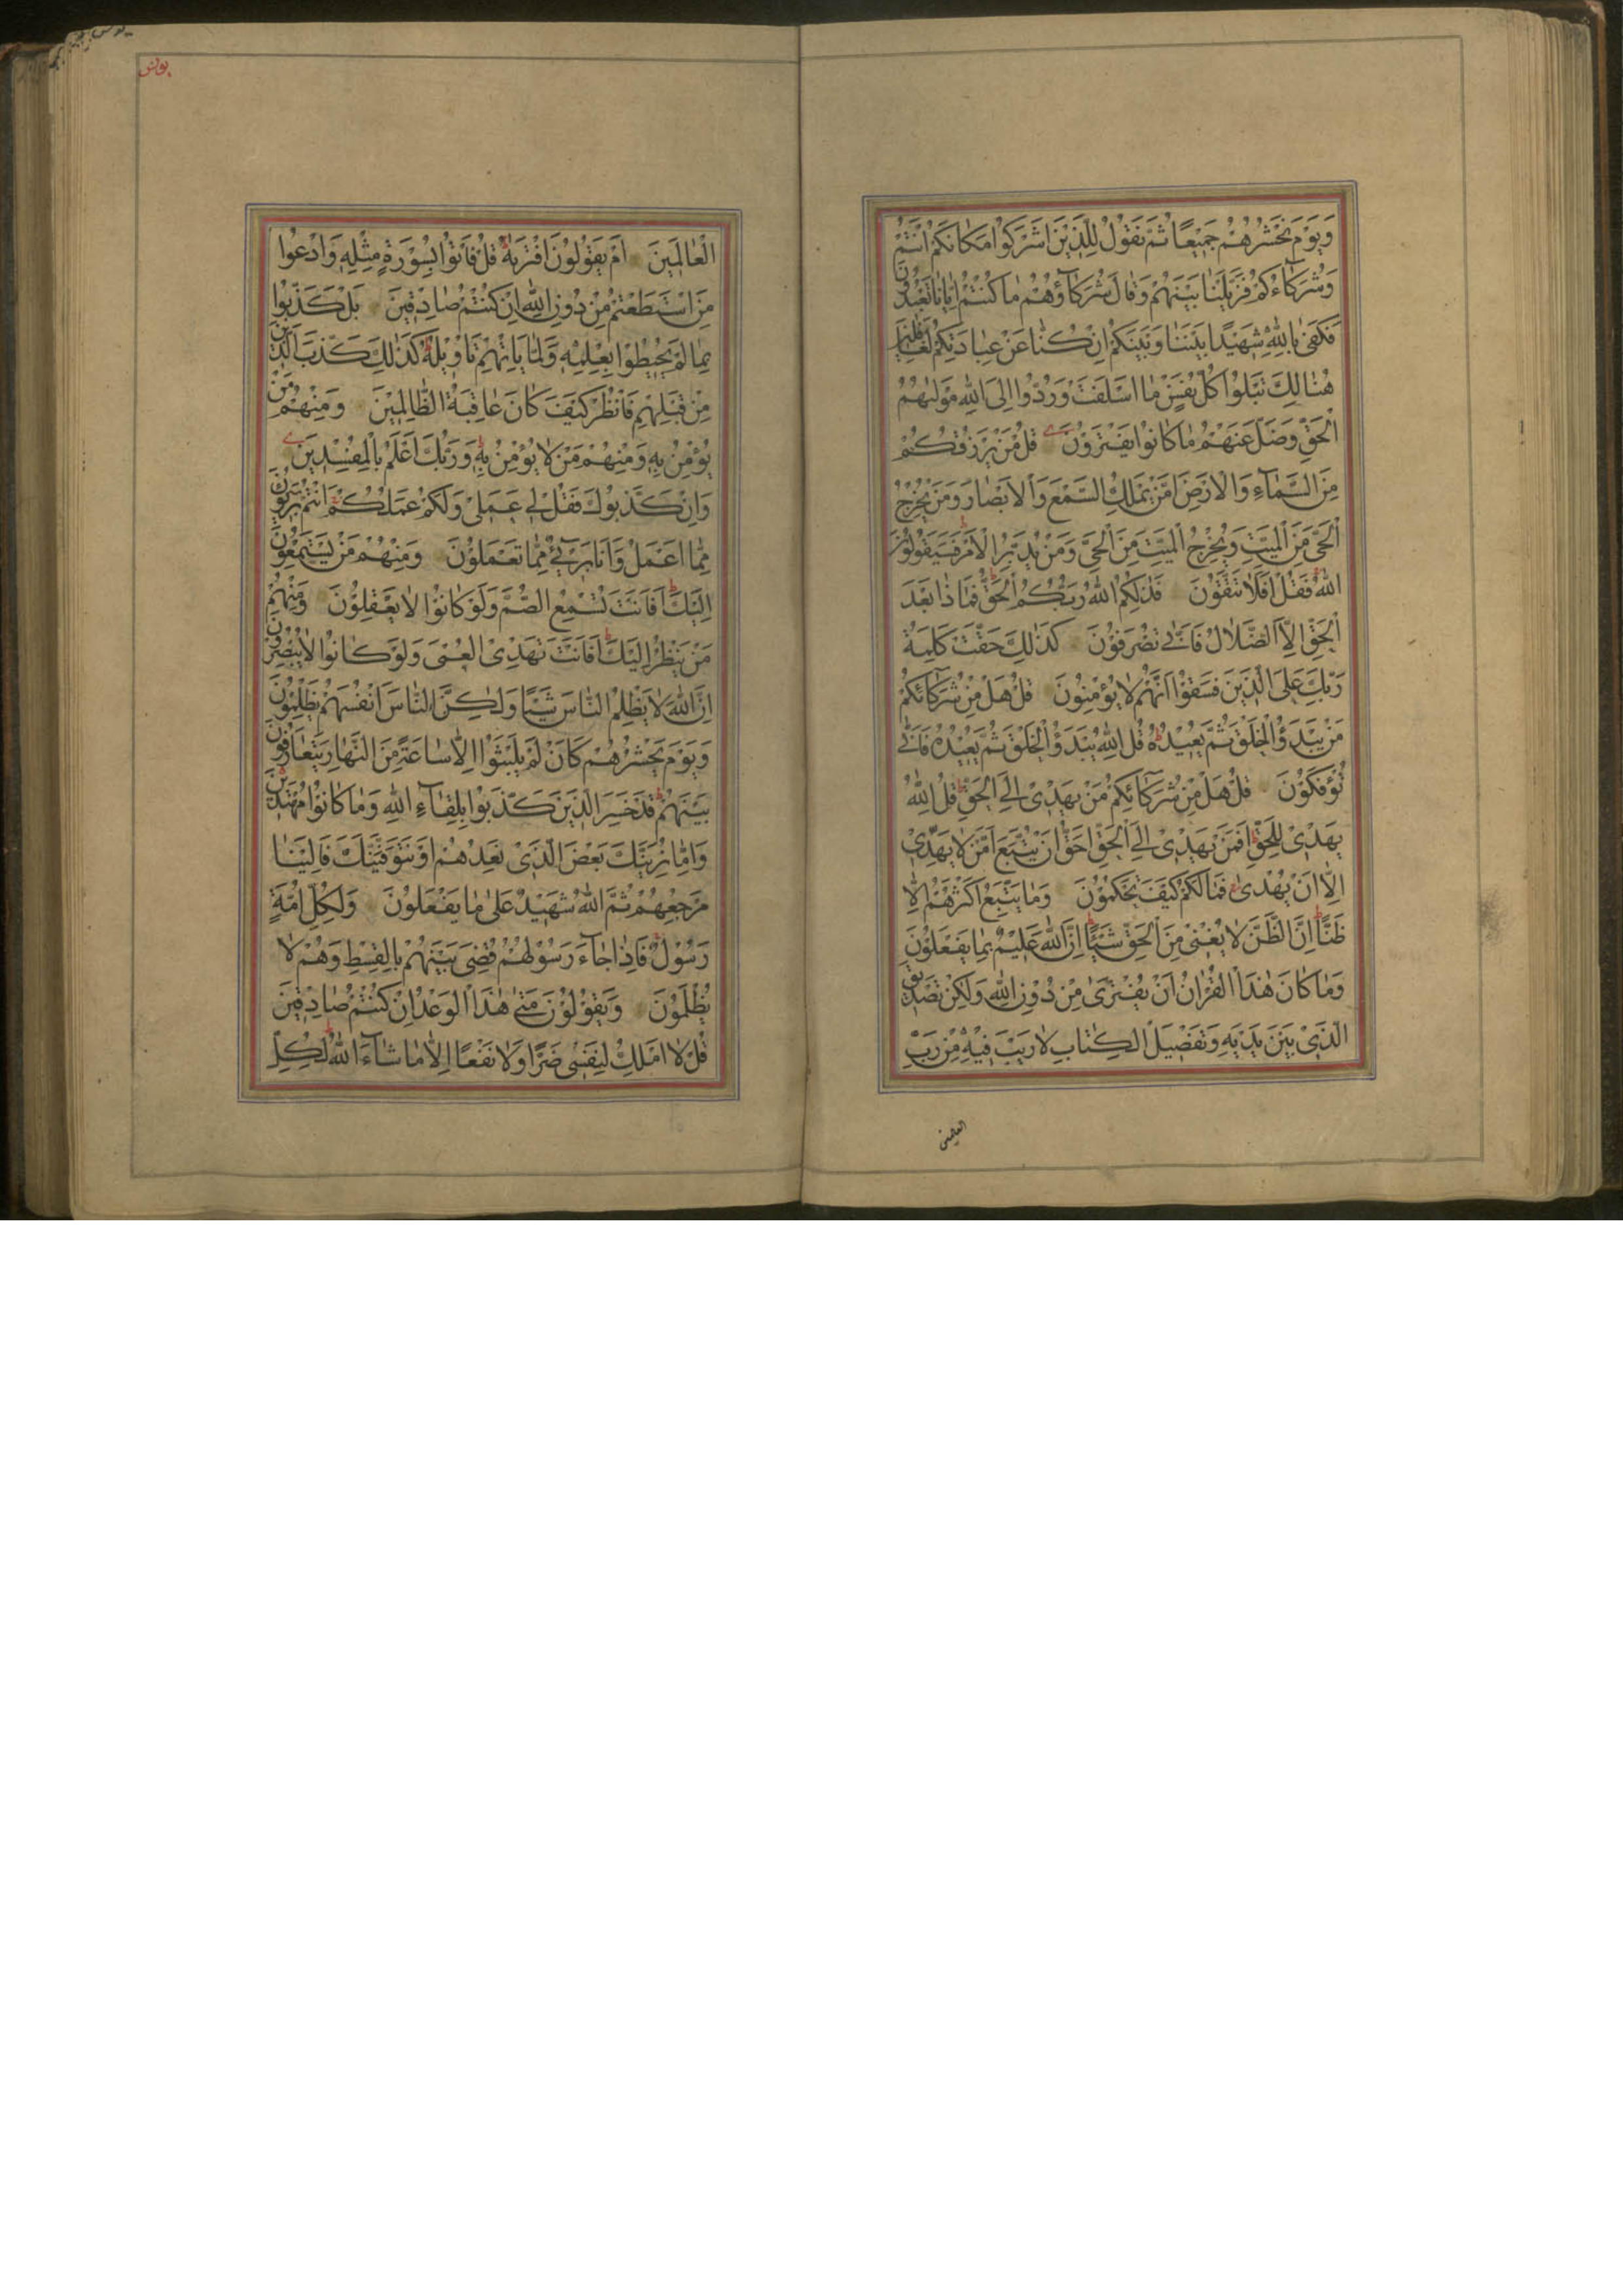 وَيَوْمَ نَحْشُرُهُمْ جَمِيْعًا ثُمَّ نَقُولُ لِلَّذِيْنَ اَشْرَكُوْا مَكَانَكُمْ اَنْتُمْ
وَشُرَكَاۤءُكُمْ فَزَيَّلْنَا بَيْنَهُمْ وَقَالَ شُرَكَاۤؤُهُمْ مَا كُنْتُمْ اِيَّانَا تَعْبُدُوْنَ
فَكَفٰى بِاللّٰهِ شَهِيْدًا بَيْنَنَا وَبَيْنَكُمْ اِنْ كُنَّا عَنْ عِبَادَتِكُمْ لَغَافِلِيْنَ
هُنَالِكَ تَبْلُوْا كُلُّ نَفْسٍ مَا اَسْلَفَتْ وَرُدُّوا اِلَى اللّٰهِ مَوْلٰيهُمُ
الْحَقِّ وَضَلَّ عَنْهُمْ مَا كَانُوْا يَفْتَرُوْنَ قُلْ مَنْ يَرْزُقُكُمْ
مِنَ السَّمَاۤءِ وَالْاَرْضِ اَمَّنْ يَمْلِكُ السَّمْعَ وَالْاَبْصَارَ وَمَنْ يُخْرِجُ
الْحَيَّ مِنَ الْمَيِّتِ وَيُخْرِجُ الْمَيِّتَ مِنَ الْحَيِّ وَمَنْ يُدَبِّرُ الْاَمْرَ فَسَيَقُوْلُوْنَ
اللّٰهُ فَقُلْ اَفَلَا تَتَّقُوْنَ فَذٰلِكُمُ اللّٰهُ رَبُّكُمُ الْحَقُّ فَمَاذَا بَعْدَ
الْحَقِّ اِلَّا الضَّلَالُ فَاَنّٰى تُصْرَفُوْنَ كَذٰلِكَ حَقَّتْ كَلِمَةُ
رَبِّكَ عَلَى الَّذِيْنَ فَسَقُوْا اَنَّهُمْ لَا يُؤْمِنُوْنَ قُلْ هَلْ مِنْ شُرَكَاۤئِكُمْ
مَنْ يَبْدَؤُ الْخَلْقَ ثُمَّ يُعِيْدُهُ قُلِ اللّٰهُ يَبْدَؤُ الْخَلْقَ ثُمَّ يُعِيْدُهُ فَاَنّٰى
تُؤْفَكُوْنَ قُلْ هَلْ مِنْ شُرَكَاۤئِكُمْ مَنْ يَهْدِيْ اِلَى الْحَقِّ قُلِ اللّٰهُ
يَهْدِيْ لِلْحَقِّ اَفَمَنْ يَهْدِيْ اِلَى الْحَقِّ اَحَقُّ اَنْ يُتَّبَعَ اَمَّنْ لَا يَهِدِّيْ
اِلَّا اَنْ يُهْدٰى فَمَا لَكُمْ كَيْفَ تَحْكُمُوْنَ وَمَا يَتَّبِعُ اَكْثَرُهُمْ اِلَّا
ظَنًّا اِنَّ الظَّنَّ لَا يُغْنِيْ مِنَ الْحَقِّ شَيْئًا اِنَّ اللّٰهَ عَلِيْمٌ بِمَا يَفْعَلُوْنَ
وَمَا كَانَ هٰذَا الْقُرْاٰنُ اَنْ يُفْتَرٰى مِنْ دُوْنِ اللّٰهِ وَلٰكِنْ تَصْدِيْقَ
الَّذِيْ بَيْنَ يَدَيْهِ وَتَفْصِيْلَ الْكِتَابِ لَا رَيْبَ فِيْهِ مِنْ رَبِّ
العلمين
يونس
الْعَالَمِيْنَ اَمْ يَقُوْلُوْنَ افْتَرٰيهُ قُلْ فَاْتُوْا بِسُوْرَةٍ مِثْلِهِ وَادْعُوْا
مَنِ اسْتَطَعْتُمْ مِنْ دُوْنِ اللّٰهِ اِنْ كُنْتُمْ صَادِقِيْنَ بَلْ كَذَّبُوْا
بِمَا لَمْ يُحِيْطُوْا بِعِلْمِهِ وَلَمَّا يَاْتِهِمْ تَاْوِيْلُهُ كَذٰلِكَ كَذَّبَ الَّذِيْنَ
مِنْ قَبْلِهِمْ فَانْظُرْ كَيْفَ كَانَ عَاقِبَةُ الظَّالِمِيْنَ وَمِنْهُمْ مَنْ
يُؤْمِنُ بِهِ وَمِنْهُمْ مَنْ لَا يُؤْمِنُ بِهِ وَرَبُّكَ اَعْلَمُ بِالْمُفْسِدِيْنَ
وَاِنْ كَذَّبُوْكَ فَقُلْ لِيْ عَمَلِيْ وَلَكُمْ عَمَلُكُمْ اَنْتُمْ بَرِيْؤُنَ
مِمَّا اَعْمَلُ وَاَنَا بَرِيْۤءٌ مِمَّا تَعْمَلُوْنَ وَمِنْهُمْ مَنْ يَسْتَمِعُوْنَ
اِلَيْكَ اَفَاَنْتَ تُسْمِعُ الصُّمَّ وَلَوْ كَانُوْا لَا يَعْقِلُوْنَ وَمِنْهُمْ
مَنْ يَنْظُرُ اِلَيْكَ اَفَاَنْتَ تَهْدِى الْعُمْيَ وَلَوْ كَانُوْا لَا يُبْصِرُوْنَ
اِنَّ اللّٰهَ لَا يَظْلِمُ النَّاسَ شَيْئًا وَلٰكِنَّ النَّاسَ اَنْفُسَهُمْ يَظْلِمُوْنَ
وَيَوْمَ يَحْشُرُهُمْ كَاَنْ لَمْ يَلْبَثُوْا اِلَّا سَاعَةً مِنَ النَّهَارِ يَتَعَارَفُوْنَ
بَيْنَهُمْ قَدْ خَسِرَ الَّذِيْنَ كَذَّبُوْا بِلِقَاۤءِ اللّٰهِ وَمَا كَانُوْا مُهْتَدِيْنَ
وَاِمَّا نُرِيَنَّكَ بَعْضَ الَّذِيْ نَعِدُهُمْ اَوْ نَتَوَفَّيَنَّكَ فَاِلَيْنَا
مَرْجِعُهُمْ ثُمَّ اللّٰهُ شَهِيْدٌ عَلٰى مَا يَفْعَلُوْنَ وَلِكُلِّ اُمَّةٍ
رَسُوْلٌ فَاِذَا جَاۤءَ رَسُوْلُهُمْ قُضِيَ بَيْنَهُمْ بِالْقِسْطِ وَهُمْ لَا
يُظْلَمُوْنَ وَيَقُوْلُوْنَ مَتٰى هٰذَا الْوَعْدُ اِنْ كُنْتُمْ صَادِقِيْنَ
قُلْ لَا اَمْلِكُ لِنَفْسِيْ ضَرًّا وَلَا نَفْعًا اِلَّا مَا شَاۤءَ اللّٰهُ لِكُلِّ